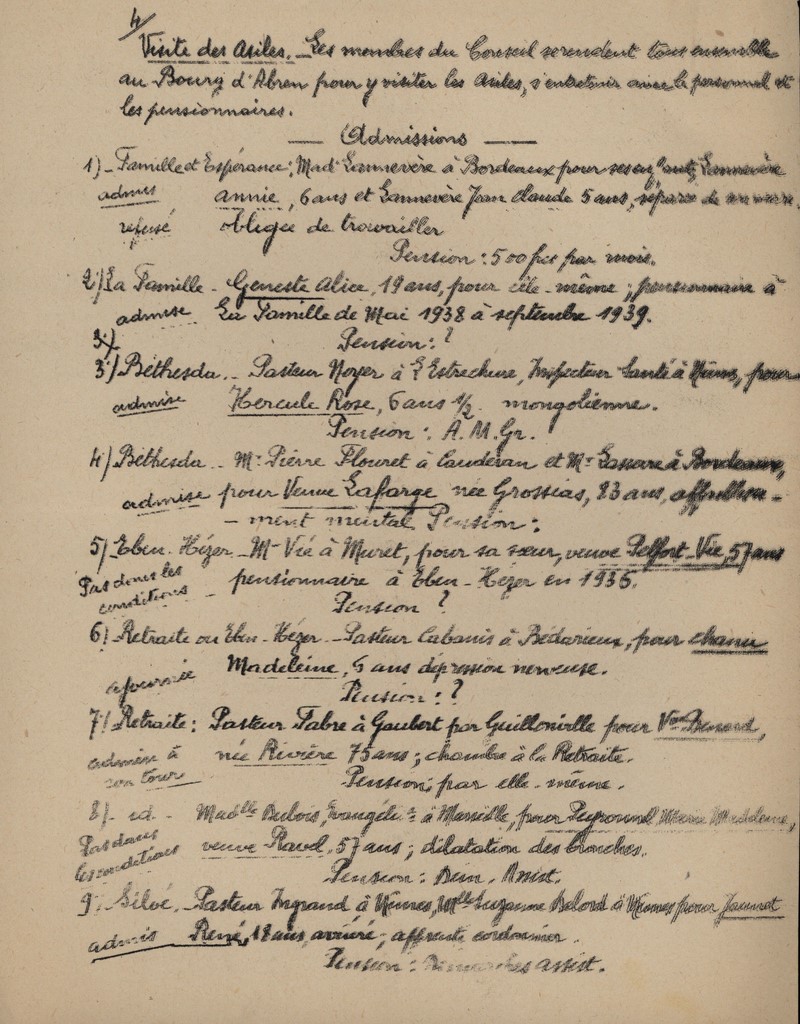 4/
Visite des Asiles. - Les membres du Conseil se rendent tous ensemble
au Bourg d'Abren pour y visiter les Asiles, s'entretenir avec le personnel et
les pensionnaires.
Admissions
1) - Famille et Espérance: Mad. Lannevère à Bordeaux pour ses Lannevère
admis annie, 6 ans et Lannevère Jean Claude 5 ans, séparée de
refusé obligée de travailler
Pension: 500 frs par mois.
2/ La Famille - Geneste Alice, 19 ans, pour elle-même; pensionnaire à
admise La Famille de Mai 1938 à septembre 1939.
3/ Pension: ?
3/ Béthesda. - Pasteur Noyer à l'Estrechure, Inspecteur Santé à Nîmes, pour
admise Hercule Rose, 6 ans 1/2 mongolienne.
Pension: A.M.Gr.
4/ Béthesda - Mr Pierre Flouret à Caudéran et Mr à Bordeaux,
admise pour Veuve Lafarge née Grossias, 83 ans,
- ment mental Pension:
5/ Eben-Hézer - Mr Vié à Muret, pour sa sœur, veuve Peffort-Vié, 57 ans
Pas dans les conditions - pensionnaire à Eben-Hézer en 1936.
Pension ?
6/ Retraite ou Eben-Hézer - Pasteur Cabanis à Bédarieux, pour
ajournée Madeleine, ans dépression nerveuse.
Pension: ?
7/ Retraite: Pasteur Fabre à Gaubert par Guillonville pour Vve
admise à son tour née Rivière 75 ans; chambre à la Retraite.
Pension: par elle-même.
8/ id - Madelle Dubois, à Marseille, pour Peyronnel
Pas dans les conditions veuve Ravel, 57 ans; dilatation des bronches.
Pension: Dem. Assist.
9/ Siloé. Pasteur Ingrand à Nîmes, Melle Suzanne à Nîmes pour
admis René, ans, arriéré; apprenti cordonnier.
Pension: assist.